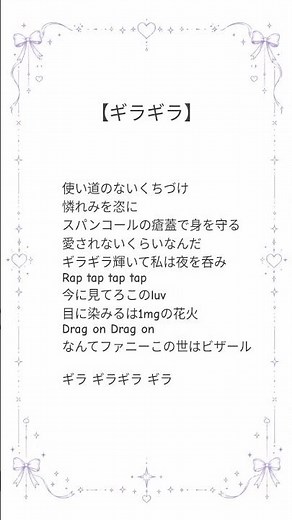 【ギラギラ】
使い道のないくちづけ
憐れみを恣に
スパンコールの瘡蓋で身を守る
愛されないくらいなんだ
ギラギラ輝いて私は夜を呑み
Rap tap tap tap
今に見てろこのluv
目に染みるは1mgの花火
Drag on Drag on
なんてファニーこの世はビザール
ギラ ギラギラ ギラ